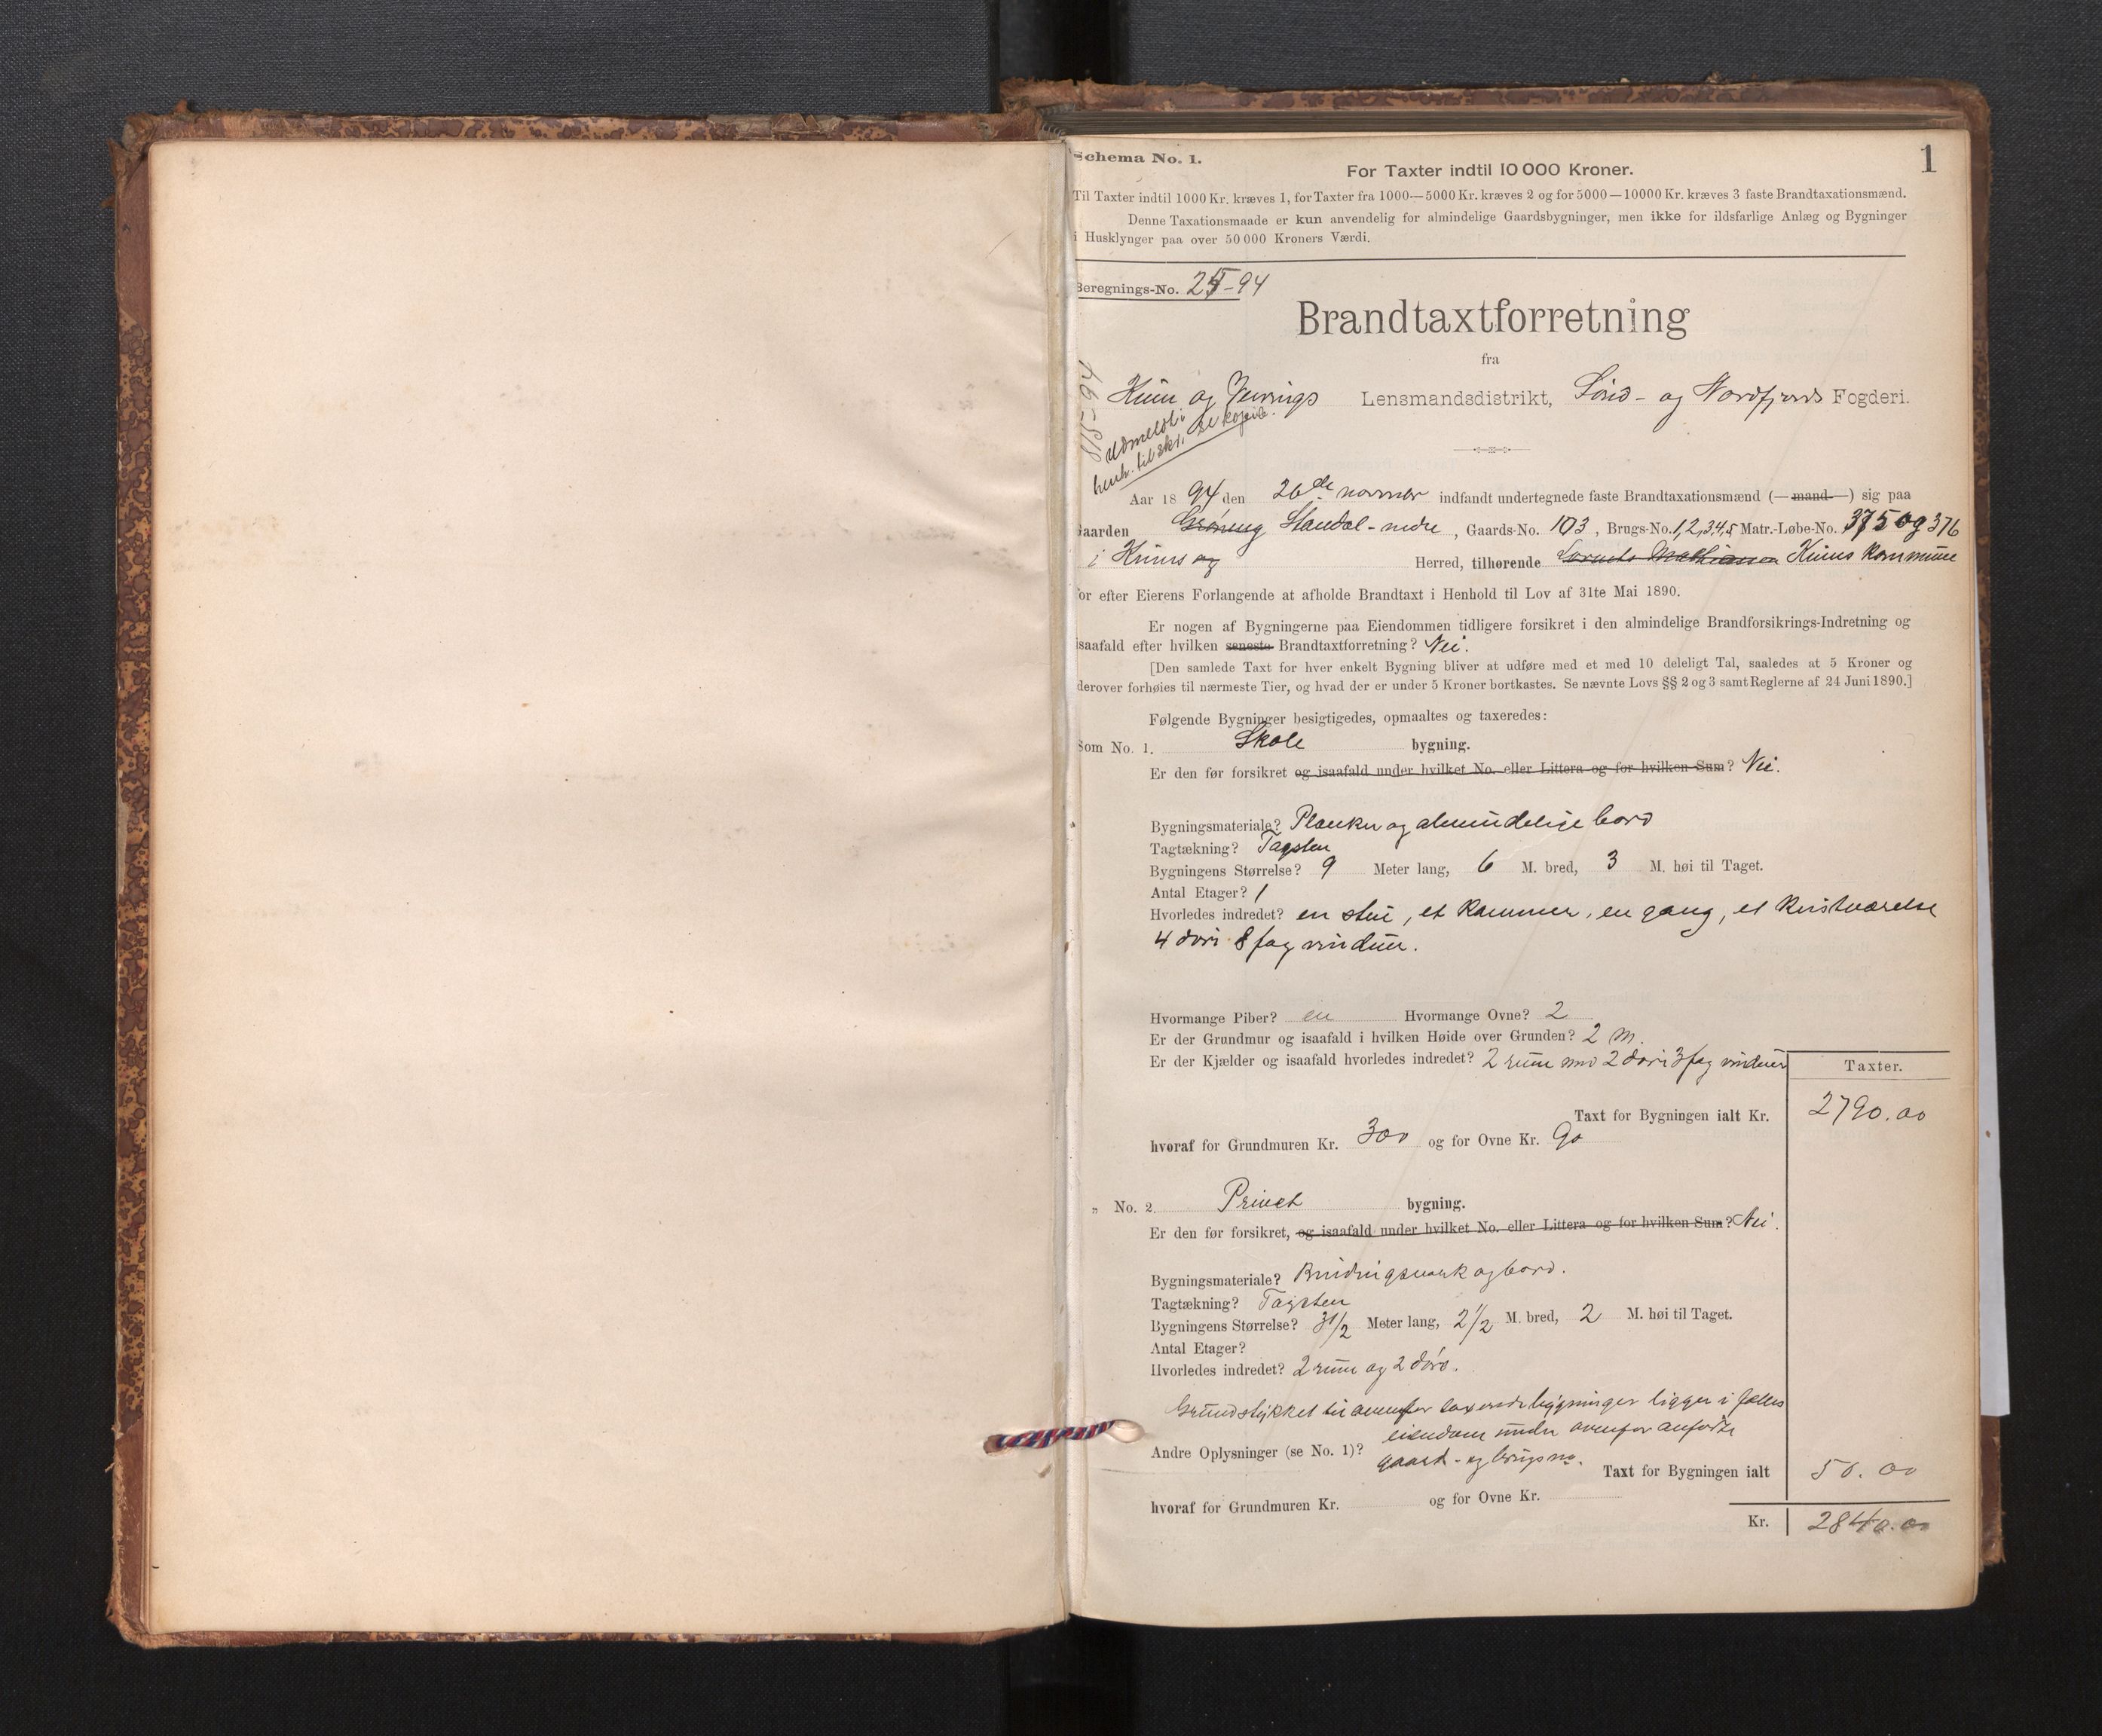 Schema No. 1.
1
For Taxter indtil 10 000 Kroner.
Til Taxter indtil 1000 Kr. kræves 1, for Taxter fra 1000—5000 Kr. kræves 2 og for 5000—10000 Kr. kræves 3 faste Brandtaxationsmænd.
Denne Taxationsmaade er kun anvendelig for almindelige Gaardsbygninger, men ikke for ildsfarlige Anlæg og Bygninger
i Husklynger paa over 50 000 Kroners Værdi.
Beregnings-No. 25-94
Brandtaxtforretning
fra
Kinn og Vevrings Lensmandsdistrikt, Sønd- og Nordfjords Fogderi.
8/5-94
Udmeldt i
henh. til skr. se kopib.
Aar 1894 den 26de novmbr indfandt undertegnede faste Brandtaxationsmænd (—mand—) sig paa
Gaarden Grøneng Standal-nedre, Gaards-No. 103, Brugs-No. 1,2,3,4,5 Matr.-Løbe-No. 375 og 376
i Kinns og Herred, tilhørende Mathiassen Kinns kommune
for efter Eierens Forlangende at afholde Brandtaxt i Henhold til Lov af 31te Mai 1890.
Er nogen af Bygningerne paa Eiendommen tidligere forsikret i den almindelige Brandforsikrings-Indretning og
isaafald efter hvilken seneste Brandtaxtforretning? Nei.
[Den samlede Taxt for hver enkelt Bygning bliver at udføre med et med 10 deleligt Tal, saaledes at 5 Kroner og
derover forhøies til nærmeste Tier, og hvad der er under 5 Kroner bortkastes. Se nævnte Lovs §§ 2 og 3 samt Reglerne af 24 Juni 1890.]
Følgende Bygninger besigtigedes, opmaaltes og taxeredes:
Som No. 1. Skole bygning.
Er den før forsikret og isaafald under hvilket No. eller Littera og for hvilken Sum? Nei.
Bygningsmateriale? Planker og almindelige bord
Tagtækning? Tagsten
Bygningens Størrelse? 9 Meter lang, 6 M. bred, 3 M. høi til Taget.
Antal Etager? 1
Hvorledes indredet? en stue, et kammer, en gang, et kvistværelse
4 døre 8 fag vinduer.
Hvormange Piber? en Hvormange Ovne? 2
Er der Grundmur og isaafald i hvilken Høide over Grunden? 2 m.
Er der Kjælder og isaafald hvorledes indredet? 2 rum med 2 døre 3 fag vinduer
Taxter.
Taxt for Bygningen ialt Kr. 2790.00
hvoraf for Grundmuren Kr. 300 og for Ovne Kr. 90
„ No. 2. Privet bygning.
Er den før forsikret, og isaafald under hvilket No. eller Littera og for hvilken Sum? Nei.
Bygningsmateriale? Bindingsverk og bord.
Tagtækning? Tagsten
Bygningens Størrelse? 3 1/2 Meter lang, 2 1/2 M. bred, 2 M. høi til Taget.
Antal Etager?
Hvorledes indredet? 2 rum og 2 døre.
Grundstykket til ovenfor taxerede bygninger ligger i fælles
eiendom under ovenfor anførte
Andre Oplysninger (se No. 1)? gaard- og brugsno.
Taxt for Bygningen ialt 50.00
hvoraf for Grundmuren Kr. og for Ovne Kr.
Kr. 2840.00